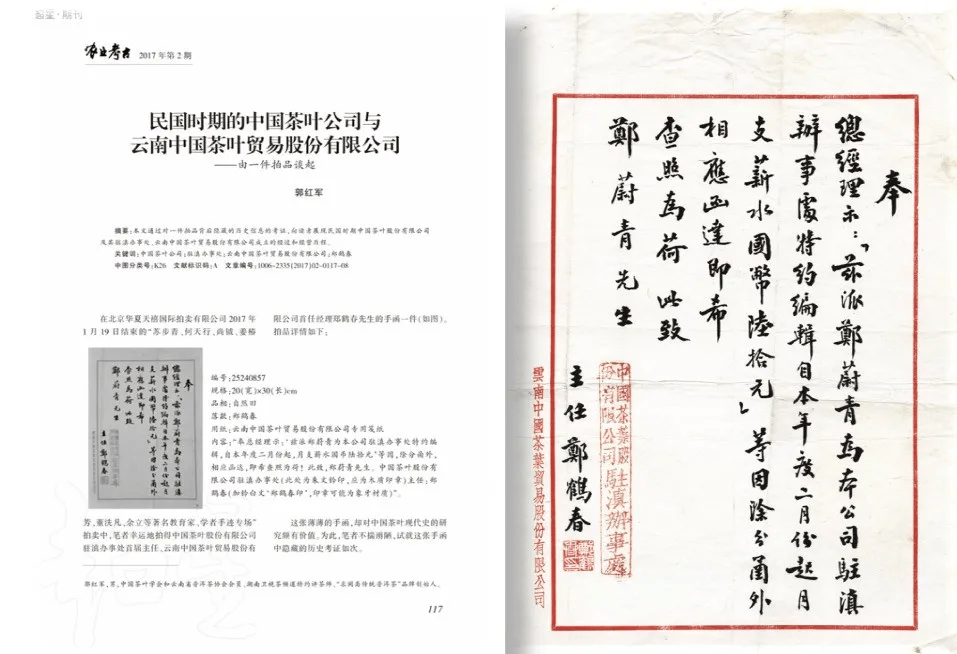 超星·期刊
农业考古 2017 年第 2 期
民国时期的中国茶叶公司与
云南中国茶叶贸易股份有限公司
——由一件拍品谈起
郭红军
摘要：本文通过对一件拍品背后隐藏的历史信息的考证，向读者展现民国时期中国茶叶股份有限公司
及其驻滇办事处、云南中国茶叶贸易股份有限公司成立的经过和经营历程。
关键词：中国茶叶公司；驻滇办事处；云南中国茶叶贸易股份有限公司；郑鹤春
中图分类号：K26 文献标识码：A 文章编号：1006-2335(2017)02-0117-08
在北京华夏天禧国际拍卖有限公司 2017 年
1 月 19 日结束的“苏步青、何天行、尚钺、姜椿
芳、董洗凡、余立等著名教育家、学者手迹专场”
拍卖中，笔者幸运地拍得中国茶叶股份有限公司
驻滇办事处首届主任、云南中国茶叶贸易股份有
限公司首任经理郑鹤春先生的手函一件(如图)。
拍品详情如下：
编号：25240857
规格：20(宽)×30(长)cm
品相：自然旧
落款：郑鹤春
用纸：云南中国茶叶贸易股份有限公司专用笺纸
内容：“奉总经理示：‘兹派郑蔚青为本公司驻滇办事处特约编
辑，自本年度二月份起，月支薪水国币陆拾元’等因，除分函外，
相应函达，即希查照为荷！此致，郑蔚青先生。中国茶叶股份有
限公司驻滇办事处(此处为朱文钤印，应为木质印章)主任：郑
鹤春(加钤白文‘郑鹤春印’，印章可能为象牙材质)”。
这张薄薄的手函，却对中国茶叶现代史的研
究颇有价值。为此，笔者不揣雨陋，试就这张手函
中隐藏的历史考证如次。
郭红军，男，中国茶叶学会和云南省普洱茶协会会员，湖南卫视茶频道特约讲茶师，“名园高传统普洱茶”品牌创始人。
117
奉
總經理示：「茲派鄭蔚青為本公司駐滇
辦事處特約編輯自本年度二月份起月
支薪水國幣陸拾元」等因除分函外
相應函達即希
查照為荷 此致
鄭蔚青先生
中國茶葉股
份有限公司駐滇辦事處
主任鄭鶴春
雲南中國茶葉貿易股份有限公司